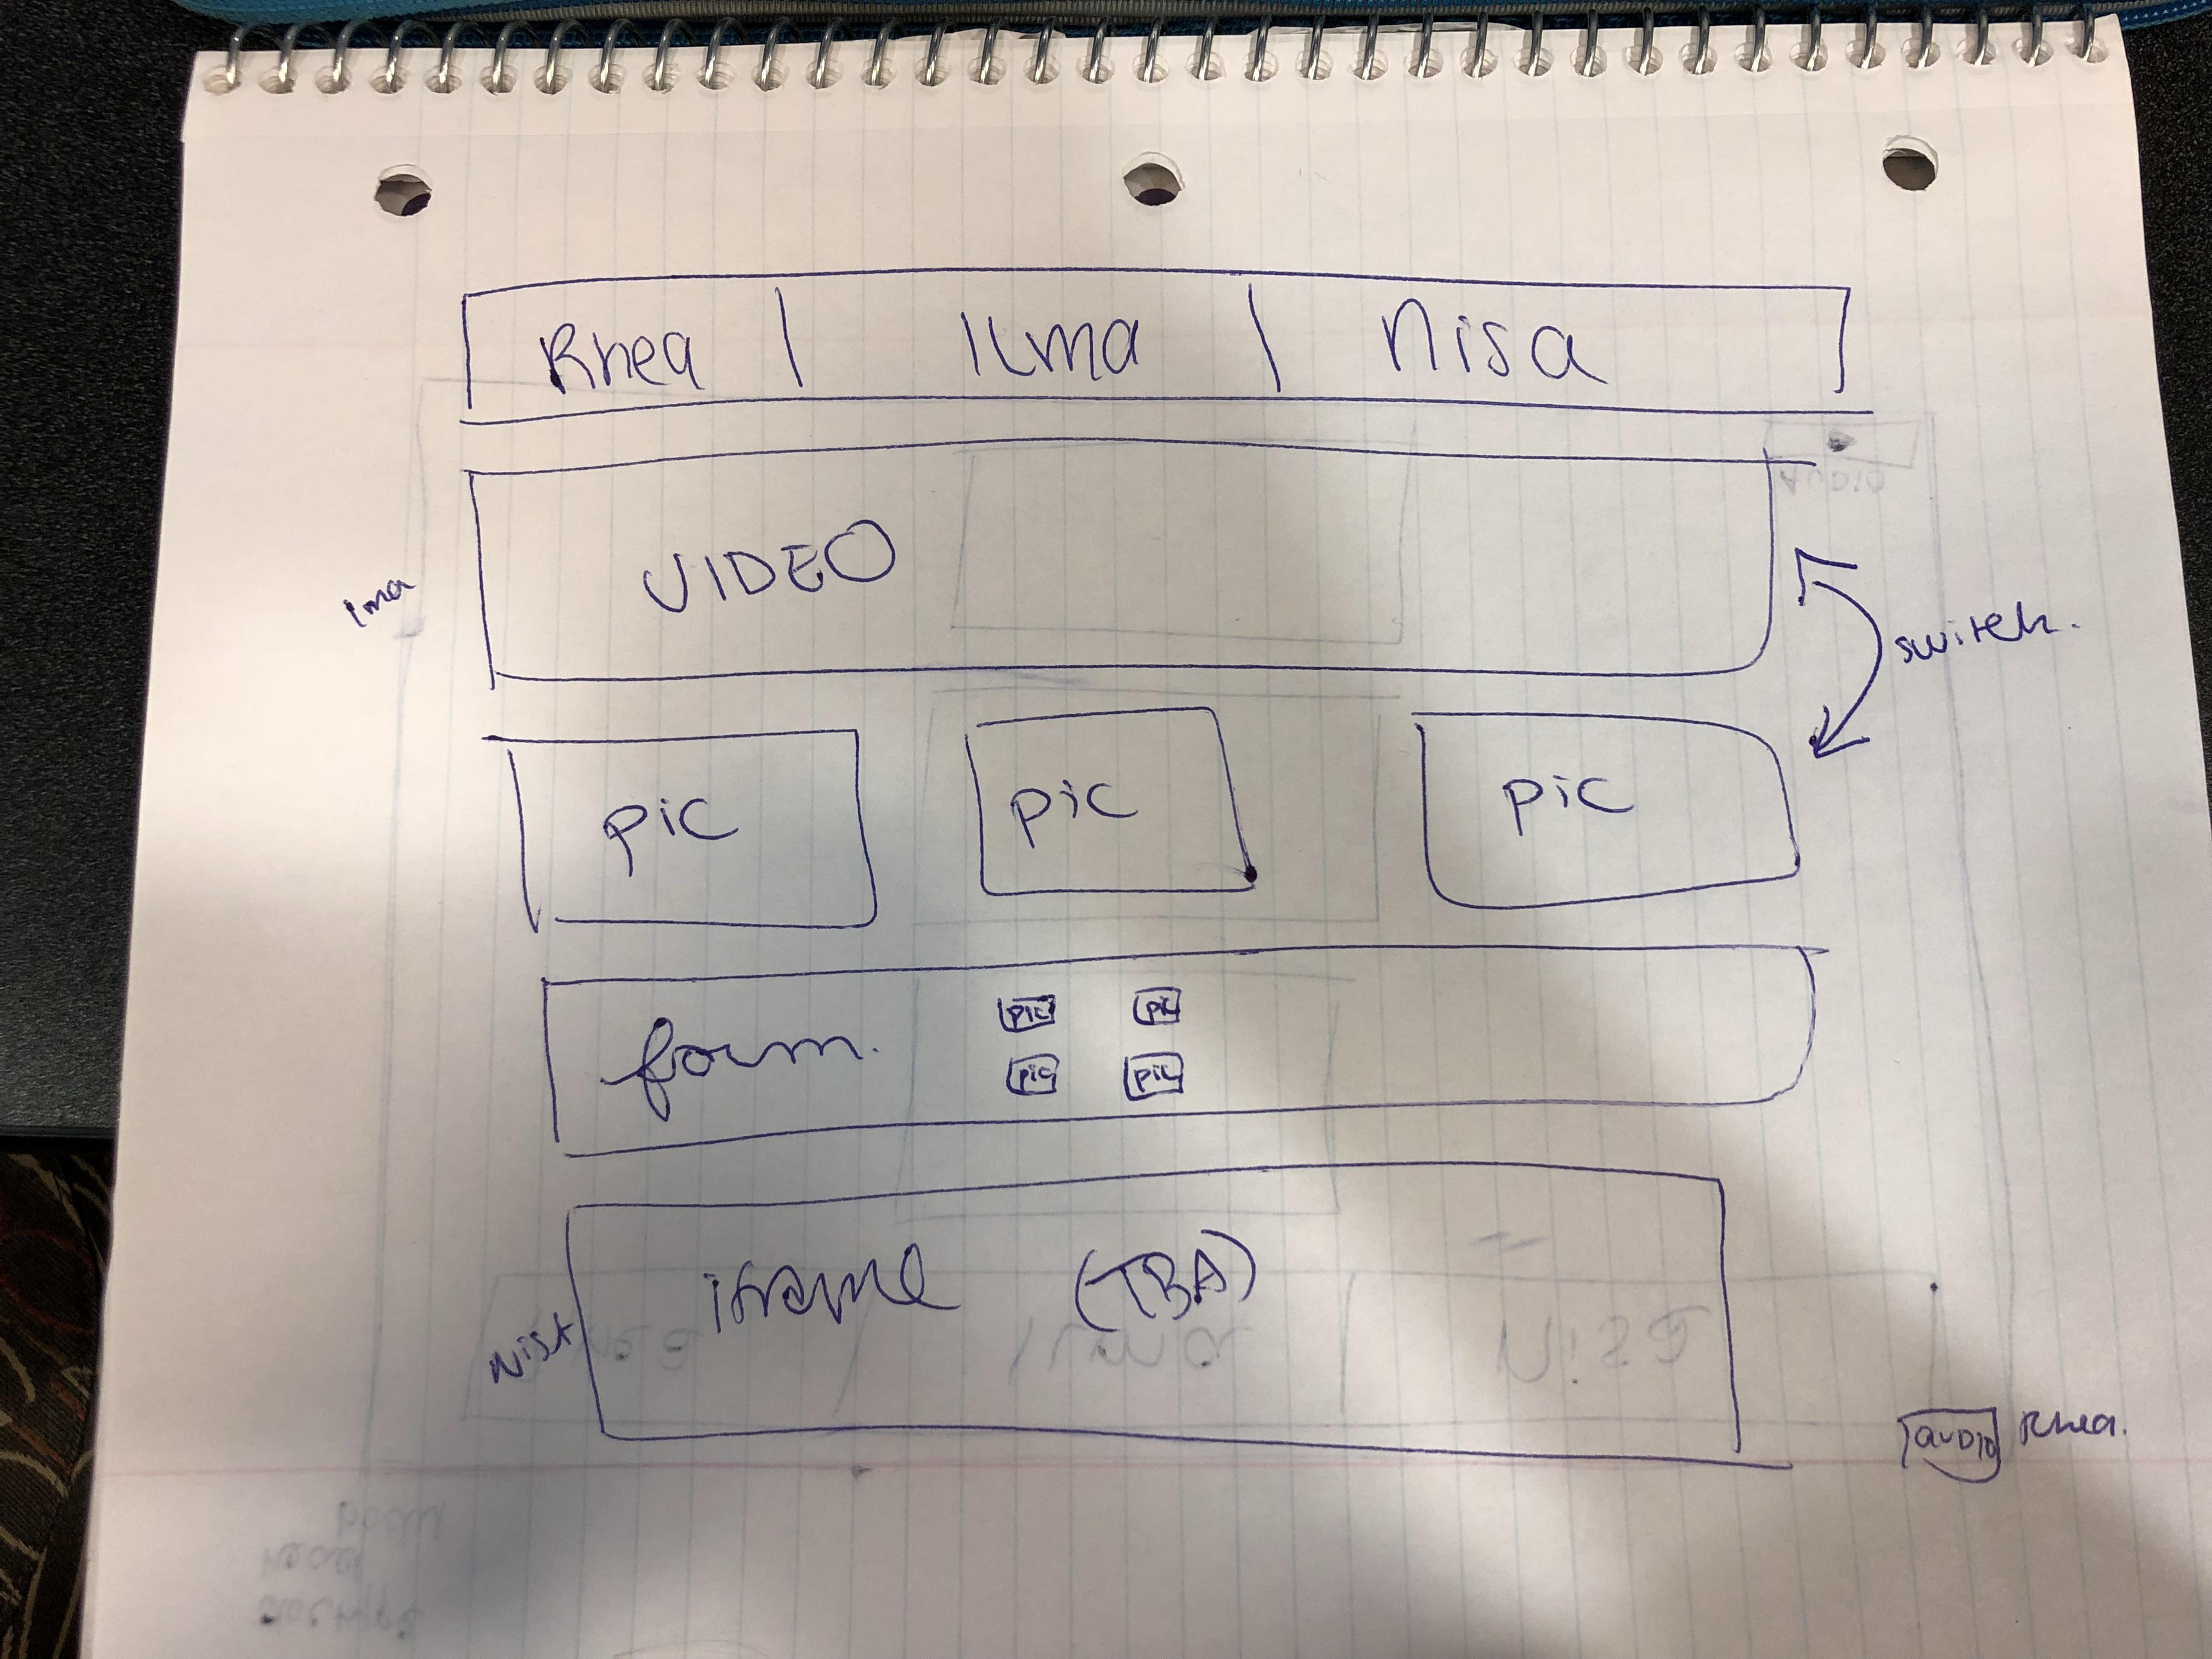 Rhea | Ilma | Nisa
VIDEO
switch.
pic pic pic
form.
pic pic
pic pic
iframe (TBA)
Nisa
audio Rhea.